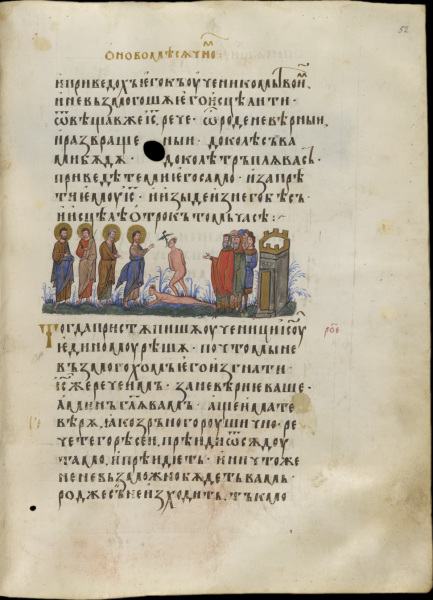 52
и приведохъ его къ оученикомь твоим
и не възмогошѧ его исцѣлити·
ѿвѣщав же іс҃, рече· ѽ роде невѣрныи,
и развраще ныи· доколѣ съ ва
ми бѫдѫ· доколѣ тръплѫ вась·
приведѣте ми его сѣмо· и запрѣ
ти емоу іс҃· и изыде из него бѣсъ·
и исцѣлѣ отрокъ томь часѣ:
Тогда пристѫпишѧ оученици іс҃оу
единомоу рѣшѧ· почто мы не
възмогохомь его изгнати·
іс҃ же рече имъ· за невѣрие ваше·
аминь гл҃ѧ вамъ· аще имате
вѣрѫ, ꙗко зръно гороушично· ре
чете горѣ сеи, прѣиди ѿсѫдоу
тамо, и прѣидетъ· и ничтоже
не невъзможно бѫдетъ вамъ·
род же сь не исходитъ, тъкмо